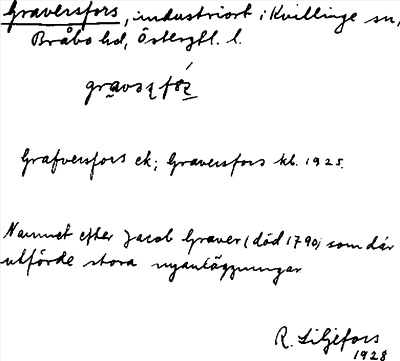 Graversfors, industriort i Kvillinge sn,
Bråbo hd, Östergtl. l.
Grafversfors ek; Graversfors kb. 1925.
Namnet efter Jacob Graver (död 1790) som där
utförde stora nyanläggningar
R. Liljefors
1928